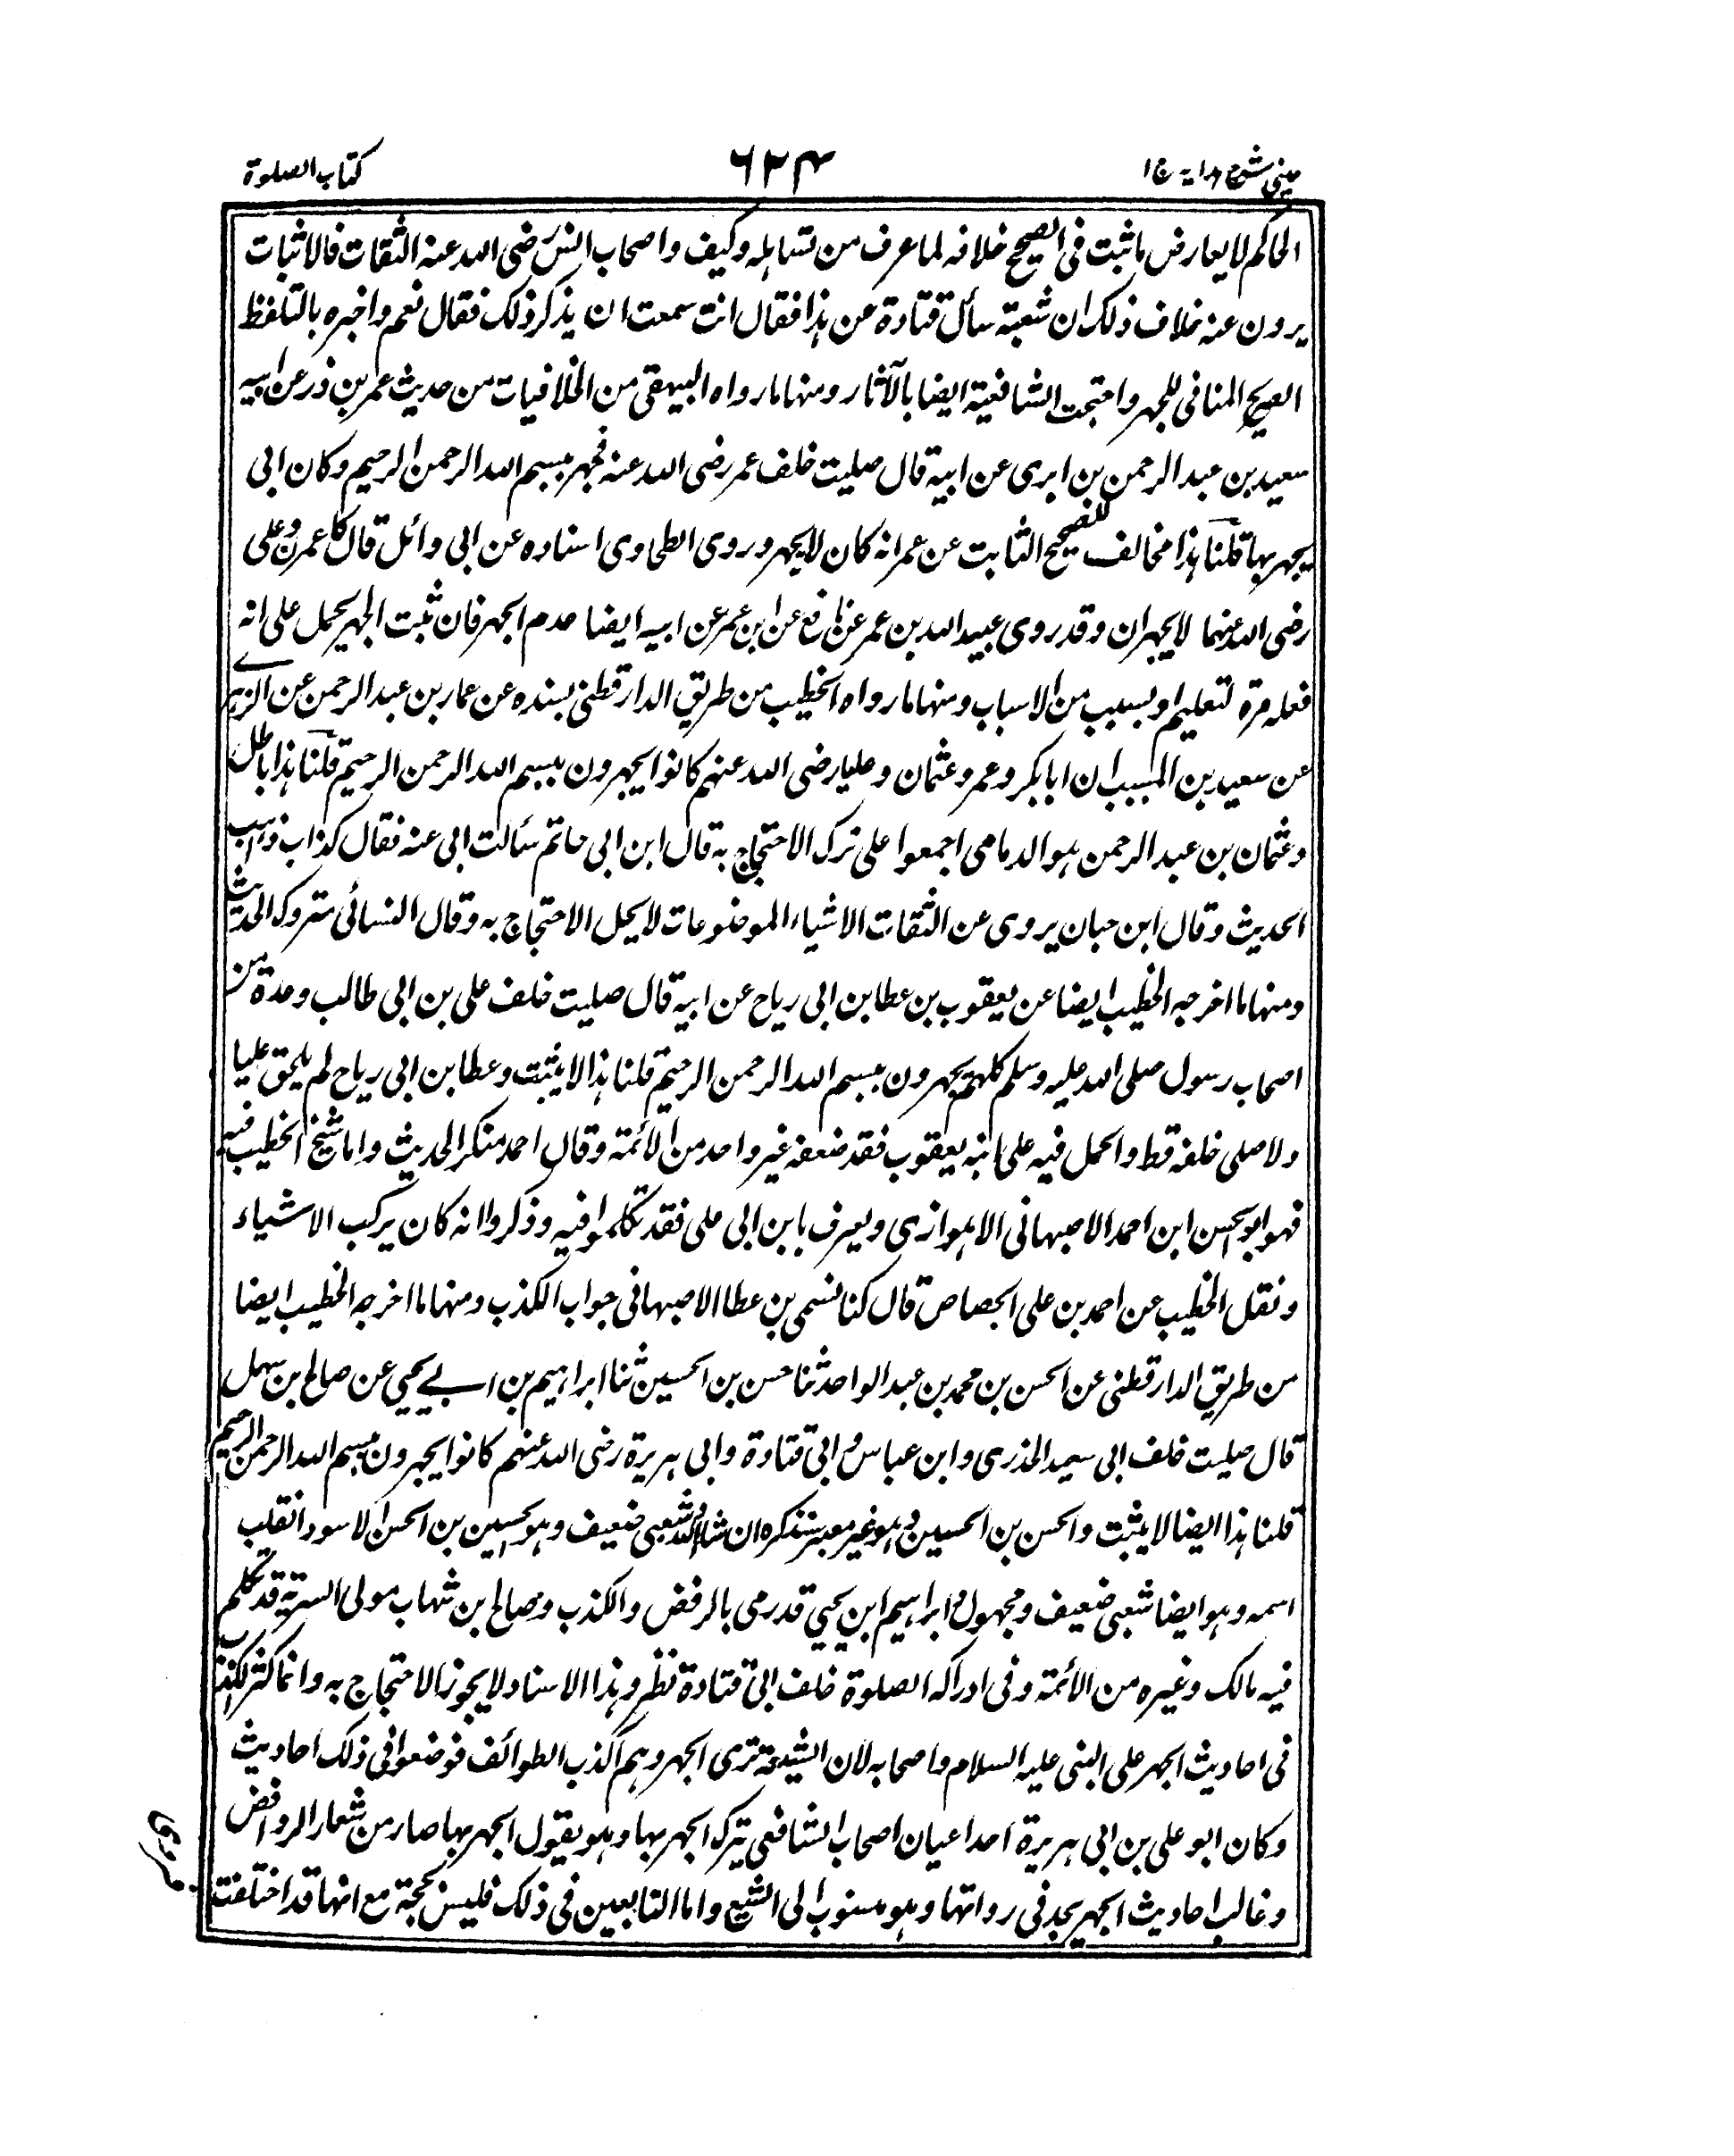 عینی شرح هدایه ج ۱
۶۲۴
کتاب الصلوة
الحاکم لا یعارض ما ثبت فی الصحیح خلافه لما عرف من تساہله وکیف واصحاب انس رضی الله عنه الثقات فالاثبات
یرون عنه خلاف ذلک ان شعبة سأل قتادة عن ہذا فقال انت سمعت ان یذکر ذلک فقال نعم واخبره بالتلفظ
الصریح المنافی للجہر واحتجت الشافعیة ایضا بالآثار ومنہا ما رواه البیہقی من الخلافیات من حدیث عمر بن ذر عن ابیہ
سعید بن عبد الرحمن بن ابری عن ابیه قال صلیت خلف عمر رضی الله عنه فجہر ببسم الله الرحمن الرحیم وکان ابی
یجہر بہا قلنا ہذا مخالف للصحیح الثابت عن عمر انه کان لا یجہر وروی الطحاوی اسناده عن ابی وائل قال کا عمرن وعلی
رضی الله عنہما لا یجہران وقد روی عبید الله بن عمر عن نافع عن ابن عمر عن ابیه ایضا عدم الجہر فان ثبت الجہر یحمل علی انه
فعله مرة لتعلیم او بسبب من الاسباب ومنہا ما رواه الخطیب من طریق الدارقطنی بسنده عن عمار بن عبد الرحمن عن الزہری
عن سعید بن المسیب ان ابا بکر وعمر وعثمان وعلیا رضی الله عنہم کانوا یجہرون ببسم الله الرحمن الرحیم قلنا ہذا باطل
وعثمان بن عبد الرحمن ہو الدمامی اجمعوا علی ترک الاحتجاج به قال ابن ابی حاتم سألت ابی عنه فقال کذاب ذاہب
الحدیث وقال ابن حبان یروی عن الثقات الاشیاء الموضوعات لا یحل الاحتجاج به وقال النسائی متروک الحدیث
ومنہا ما اخرجه الخطیب ایضا عن یعقوب بن عطا بن ابی ریاح عن ابیه قال صلیت خلف علی بن ابی طالب وعدة من
اصحاب رسول صلی الله علیه وسلم کلہم یجہرون ببسم الله الرحمن الرحیم قلنا ہذا لا یثبت وعطا بن ابی ریاح لم یلحق علیا
ولا صلی خلفه قط والحمل فیه علی ابنه یعقوب فقد ضعفه غیر واحد من الأئمة وقال احمد منکر الحدیث واما شیخ الخطیب فیه
فہو ابو الحسن ابن احمد الاصبہانی الاہوازی ویعرف بابن ابی علی فقد تکلموا فیه وذکروا انه کان یرکب الاشیاء
ونقل الخطیب عن احمد بن علی الجصاص قال کنا نسمی بن عطا الاصبہانی جواب الکذب ومنہا ما اخرجه الخطیب ایضا
من طریق الدارقطنی عن الحسن بن محمد بن عبد الواحد ثنا حسن بن الحسین ثنا ابراہیم بن ابی یحیی عن صالح بن سہل
قال صلیت خلف ابی سعید الخذری وابن عباس وابی قتادة وابی ہریرة رضی الله عنہم کانوا یجہرون ببسم الله الرحمن الرحیم
قلنا ہذا ایضا لا یثبت والحسن بن الحسین وہو غیر معبر سنذکره ان شاء الله شعبی ضعیف وہو حسین بن الحسن الاسود انقلب
اسمه وہو ایضا شعبی ضعیف ومجہول وابراہیم ابن یحیی قد رمی بالرفض والکذب وصالح بن شہاب مولی السریة قد تکلم
فیه مالک وغیره من الأئمة وفی ادراکه الصلوة خلف ابی قتادة نظر وہذا الاسناد لا یجوز الاحتجاج به وانما کثر الکذب
فی احادیث الجہر علی النبی علیه السلام واصحابه لان الشیعة تری الجہر وہم اکذب الطوائف فوضعوا فی ذلک احادیث
وکان ابو علی بن ابی ہریرة احد اعیان اصحاب الشافعی یترک الجہر بہا وہو یقول الجہر بہا صار من شعار الروافض
وغالب احادیث الجہر یجد فی رواتہا وہو منسوب الی الشیع واما التابعین فی ذلک فلیس بحجة مع انہا قد اختلفت